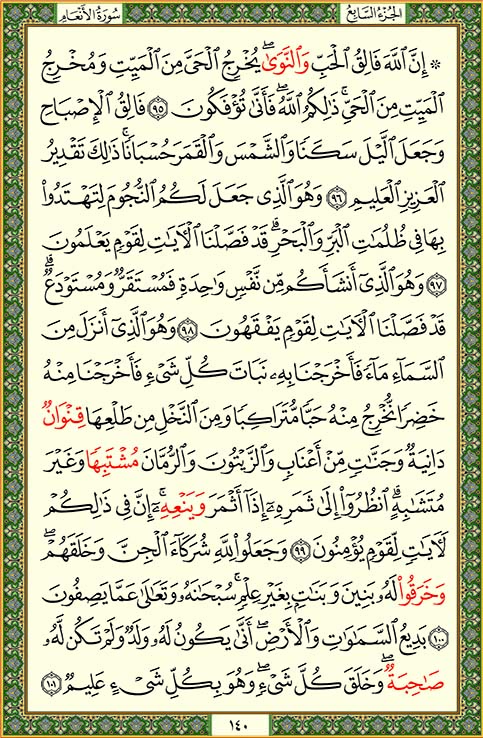 الجزء السابع سورة الأنعام
۞ إِنَّ ٱللَّهَ فَالِقُ ٱلْحَبِّ وَٱلنَّوَىٰ ۖ يُخْرِجُ ٱلْحَىَّ مِنَ ٱلْمَيِّتِ وَمُخْرِجُ
ٱلْمَيِّتِ مِنَ ٱلْحَىِّ ۚ ذَٰلِكُمُ ٱللَّهُ ۖ فَأَنَّىٰ تُؤْفَكُونَ ٩٥ فَالِقُ ٱلْإِصْبَاحِ
وَجَعَلَ ٱلَّيْلَ سَكَنًا وَٱلشَّمْسَ وَٱلْقَمَرَ حُسْبَانًا ۚ ذَٰلِكَ تَقْدِيرُ
ٱلْعَزِيزِ ٱلْعَلِيمِ ٩٦ وَهُوَ ٱلَّذِى جَعَلَ لَكُمُ ٱلنُّجُومَ لِتَهْتَدُوا۟
بِهَا فِى ظُلُمَـٰتِ ٱلْبَرِّ وَٱلْبَحْرِ ۗ قَدْ فَصَّلْنَا ٱلْـَٔايَـٰتِ لِقَوْمٍ يَعْلَمُونَ
٩٧ وَهُوَ ٱلَّذِىٓ أَنشَأَكُم مِّن نَّفْسٍ وَٰحِدَةٍ فَمُسْتَقَرٌّ وَمُسْتَوْدَعٌ ۗ
قَدْ فَصَّلْنَا ٱلْـَٔايَـٰتِ لِقَوْمٍ يَفْقَهُونَ ٩٨ وَهُوَ ٱلَّذِىٓ أَنزَلَ مِنَ
ٱلسَّمَآءِ مَآءً فَأَخْرَجْنَا بِهِۦ نَبَاتَ كُلِّ شَىْءٍ فَأَخْرَجْنَا مِنْهُ
خَضِرًا نُّخْرِجُ مِنْهُ حَبًّا مُّتَرَاكِبًا وَمِنَ ٱلنَّخْلِ مِن طَلْعِهَا قِنْوَانٌ
دَانِيَةٌ وَجَنَّـٰتٍ مِّنْ أَعْنَابٍ وَٱلزَّيْتُونَ وَٱلرُّمَّانَ مُشْتَبِهًا وَغَيْرَ
مُتَشَـٰبِهٍ ۗ ٱنظُرُوٓا۟ إِلَىٰ ثَمَرِهِۦٓ إِذَآ أَثْمَرَ وَيَنْعِهِۦٓ ۚ إِنَّ فِى ذَٰلِكُمْ
لَـَٔايَـٰتٍ لِّقَوْمٍ يُؤْمِنُونَ ٩٩ وَجَعَلُوا۟ لِلَّهِ شُرَكَآءَ ٱلْجِنَّ وَخَلَقَهُمْ ۖ
وَخَرَقُوا۟ لَهُۥ بَنِينَ وَبَنَـٰتٍۭ بِغَيْرِ عِلْمٍ ۚ سُبْحَـٰنَهُۥ وَتَعَـٰلَىٰ عَمَّا يَصِفُونَ
١٠٠ بَدِيعُ ٱلسَّمَـٰوَٰتِ وَٱلْأَرْضِ ۖ أَنَّىٰ يَكُونُ لَهُۥ وَلَدٌ وَلَمْ تَكُن لَّهُۥ
صَـٰحِبَةٌ ۖ وَخَلَقَ كُلَّ شَىْءٍ ۖ وَهُوَ بِكُلِّ شَىْءٍ عَلِيمٌ ١٠١
١٤٠